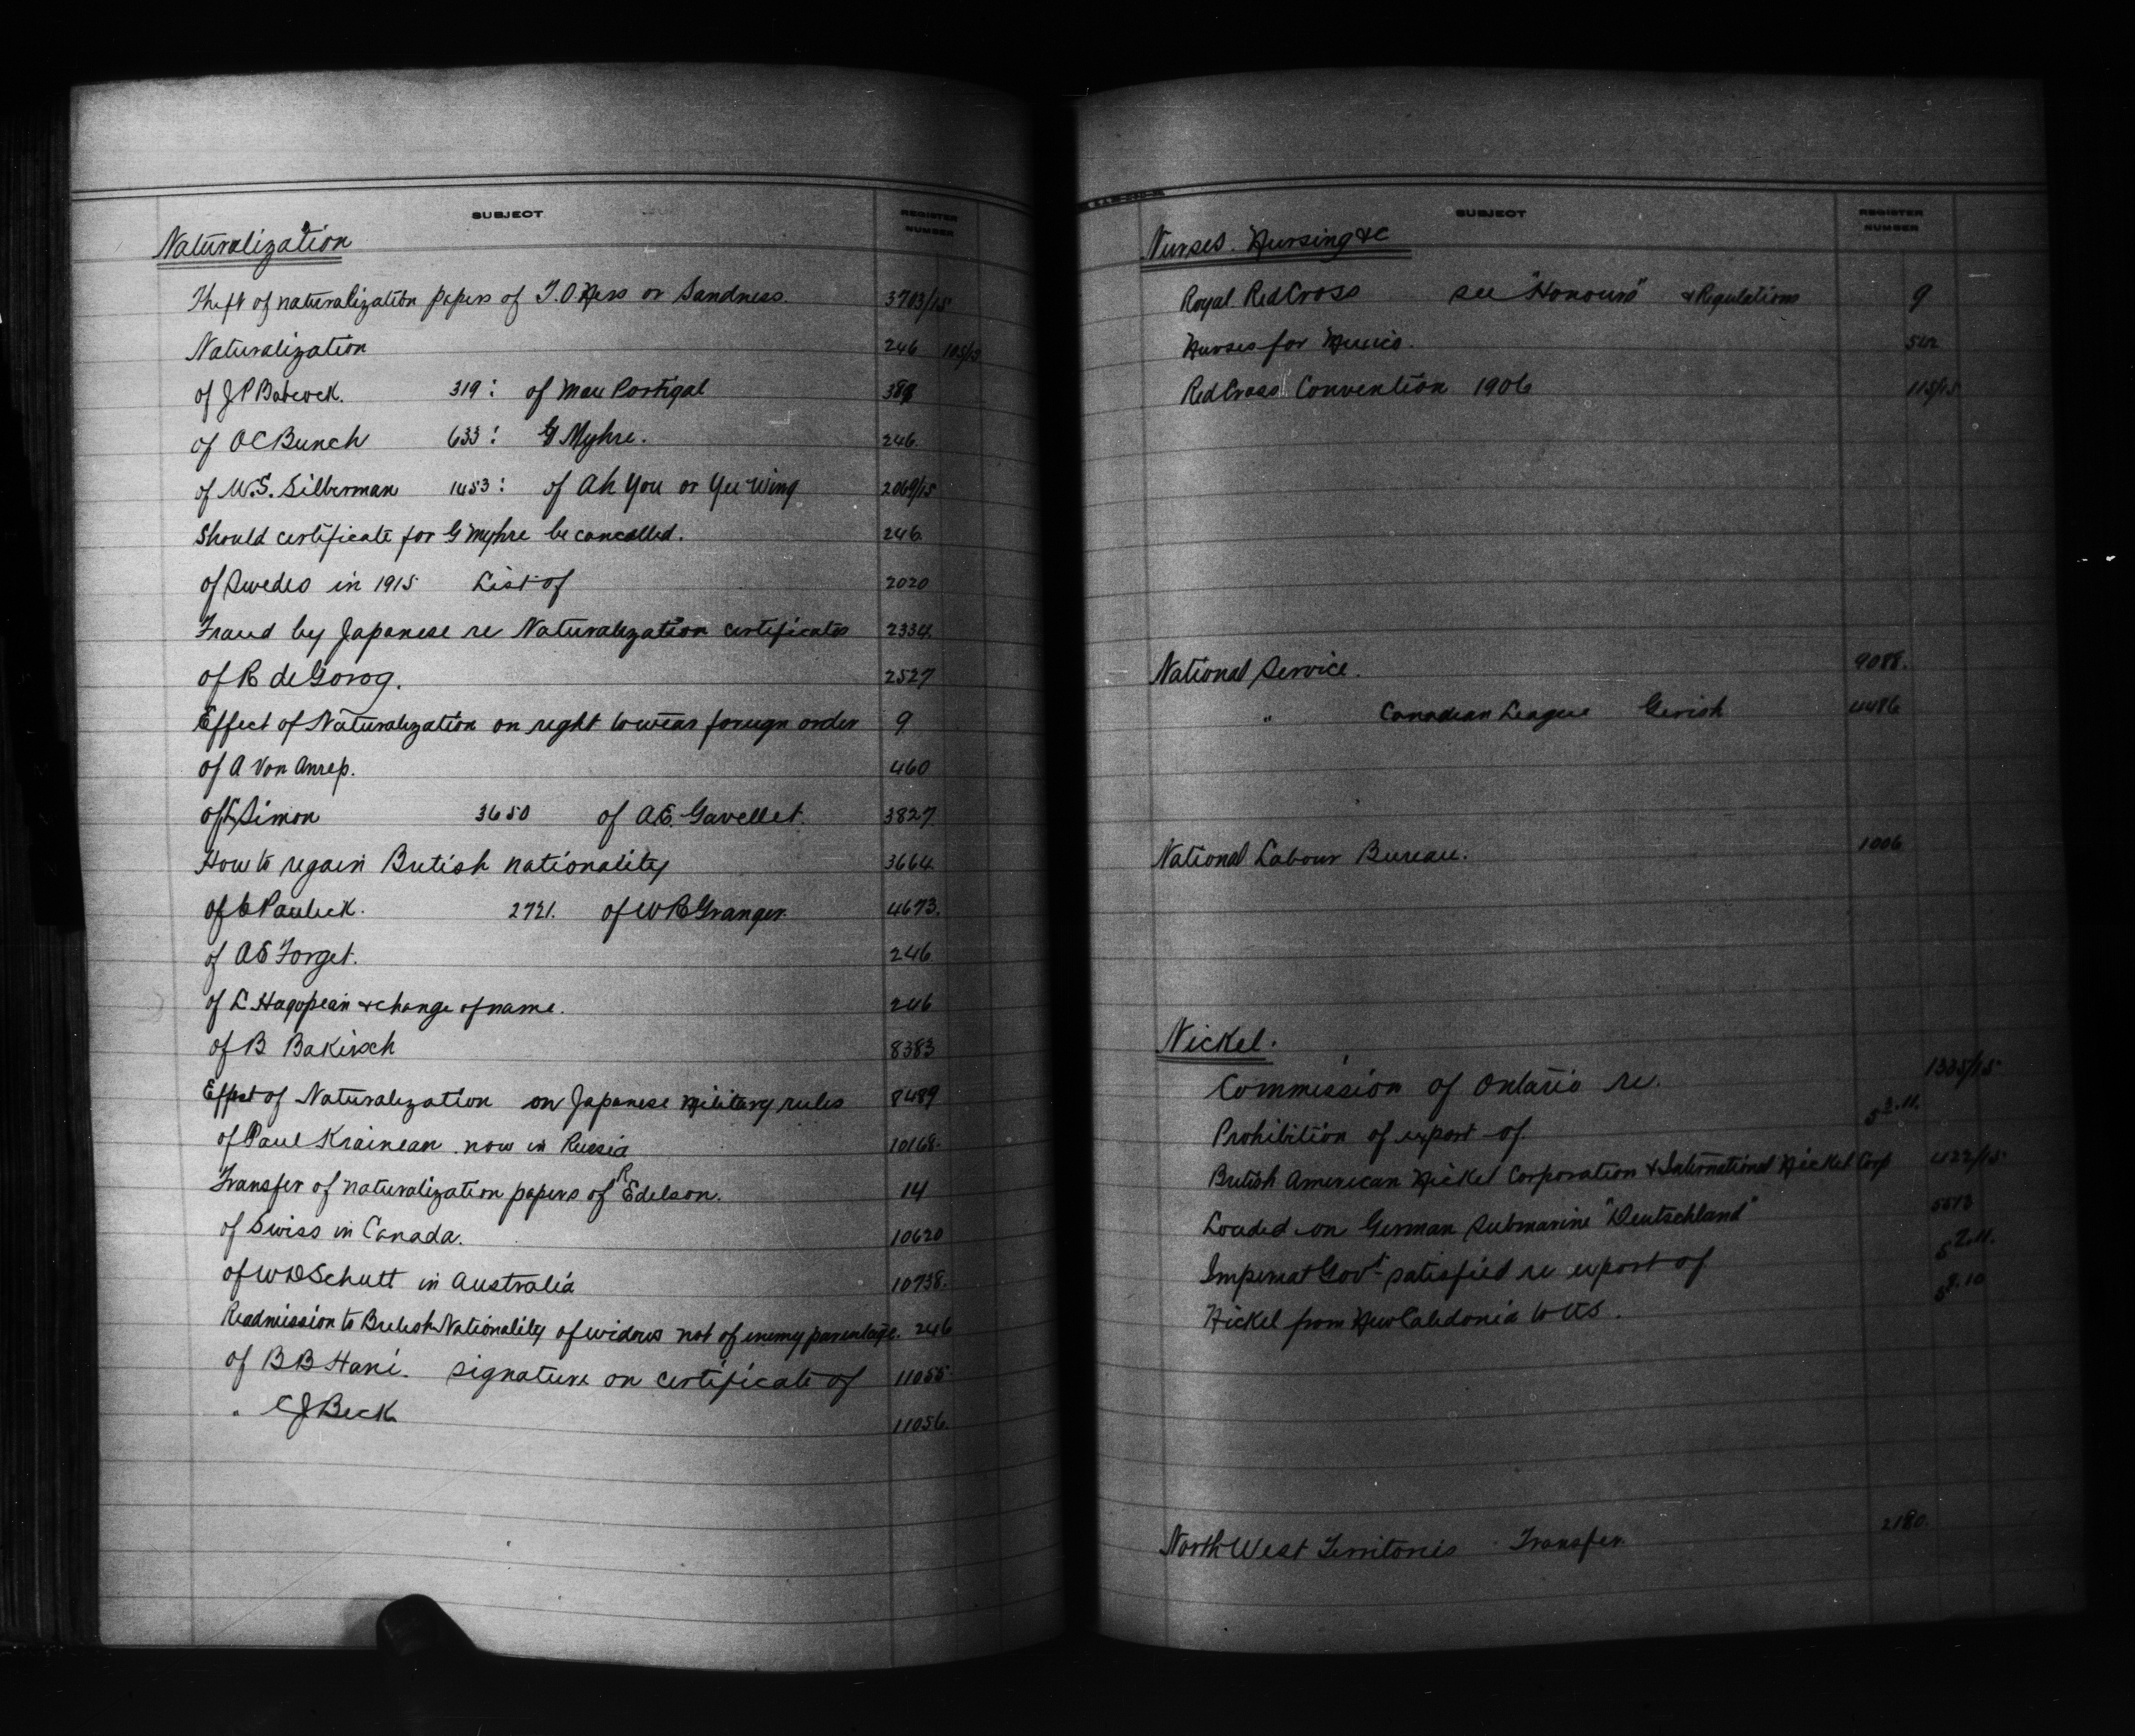 SUBJECT
REGISTER NUMBER
Naturalization
Theft of naturalization papers of T.O. Ness or Sandness. 3703/15
Naturalization 246 105/15
of J P Babcock. 319: of Max Portigal 389
of O C Bunch 633: G Myhre. 246
of W.S. Silberman 1453: of Ah You or Yee Wing 2069/15
Should certificate for G Myhre be cancelled. 246
of Swedes in 1915 List of 2020
Fraud by Japanese re Naturalization certificates 2334
of R de Gorog. 2527
Effect of Naturalization on right to wear foreign order 9
of A Von Anrep. 460
of Simon 3650 of A.E. Gavellet. 3827
How to regain British nationality 3664
of Paulick. 2721. of W R Granger. 4673.
of A E Forget. 246
of L. Hagopean & change of name. 246
of B Bakirsch 8383
Effect of Naturalization on Japanese Military rules 8489
of Paul Krainean now in Russia 10168.
Transfer of naturalization papers of R Edelson. 14
of Swiss in Canada. 10620
of W D Schutt in Australia 10738.
Readmission to British Nationality of widows not of enemy parentage. 246
of B B Hani. signature on certificate of 11055
" C J Beck 11056.
SUBJECT
REGISTER NUMBER
Nurses. Nursing &c
Royal Red Cross see "Honours" & Regulations 9
Nurses for 512
Red Cross Convention 1906 115/15
National Service. 9088.
" Canadian League Gerish 4486
National Labour Bureau. 1006
Nickel.
Commission of Ontario re. 1335/15
Prohibition of export of
British American Nickel Corporation & International Nickel Corp 422/15
Loaded on German Submarine "Deutschland"
Imperial Govt. satisfied re export of
Nickel from New Caledonia to US.
North West Territories Transfer. 2180.